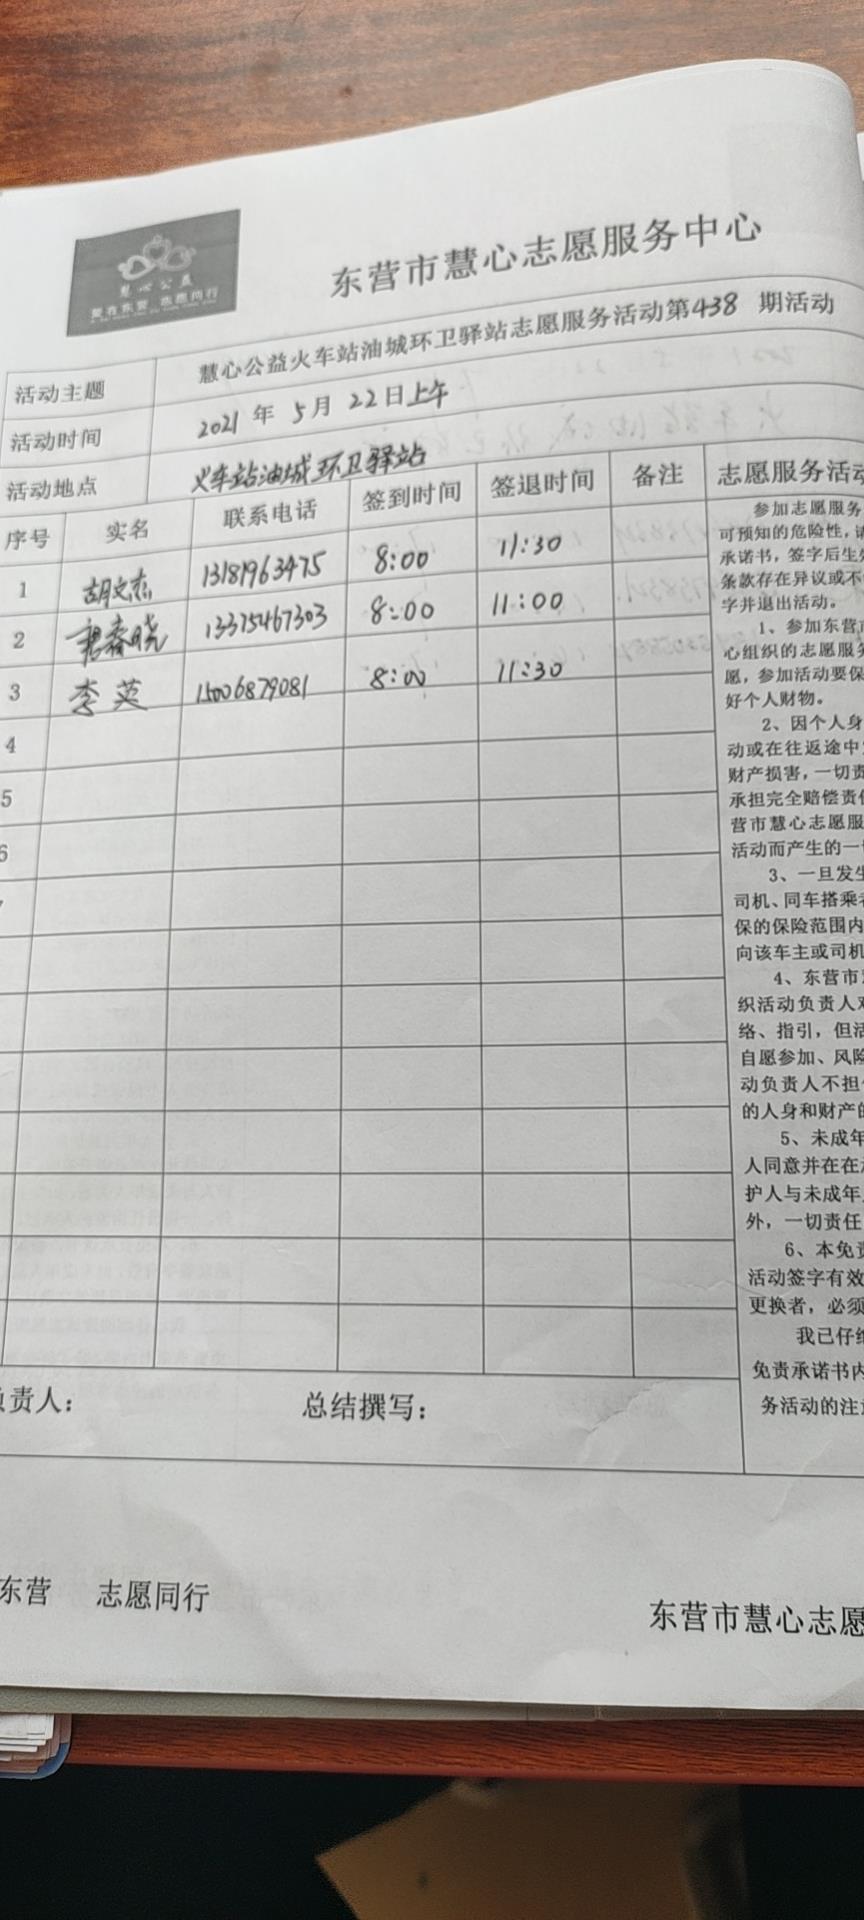 慧心公益
爱在东营 志愿同行
东营市慧心志愿服务中心
活动主题 慧心公益火车站油城环卫驿站志愿服务活动第438 期活动
活动时间 2021 年 5月 22日上午
活动地点 火车站油城环卫驿站
序号 实名 联系电话 签到时间 签退时间 备注 志愿服务活动
1 胡文杰 13181963475 8:00 11:30
2 春晓 13375467303 8:00 11:00
3 李英 15006879081 8:00 11:30
4
5
6
参加志愿服务
可预知的危险性,请
承诺书,签字后生效
条款存在异议或不
字并退出活动。
1、参加东营市
心组织的志愿服务
愿,参加活动要保
好个人财物。
2、因个人身
动或在往返途中
财产损害,一切责
承担完全赔偿责任
营市慧心志愿服
活动而产生的一切
3、一旦发生
司机、同车搭乘者
保的保险范围内
向该车主或司机
4、东营市
织活动负责人对
络、指引,但活
自愿参加、风险
动负责人不担任
的人身和财产的
5、未成年
人同意并在在
护人与未成年
外,一切责任
6、本免责
活动签字有效
更换者,必须
我已仔细
免责承诺书内
务活动的注意
负责人: 总结撰写:
东营 志愿同行 东营市慧心志愿